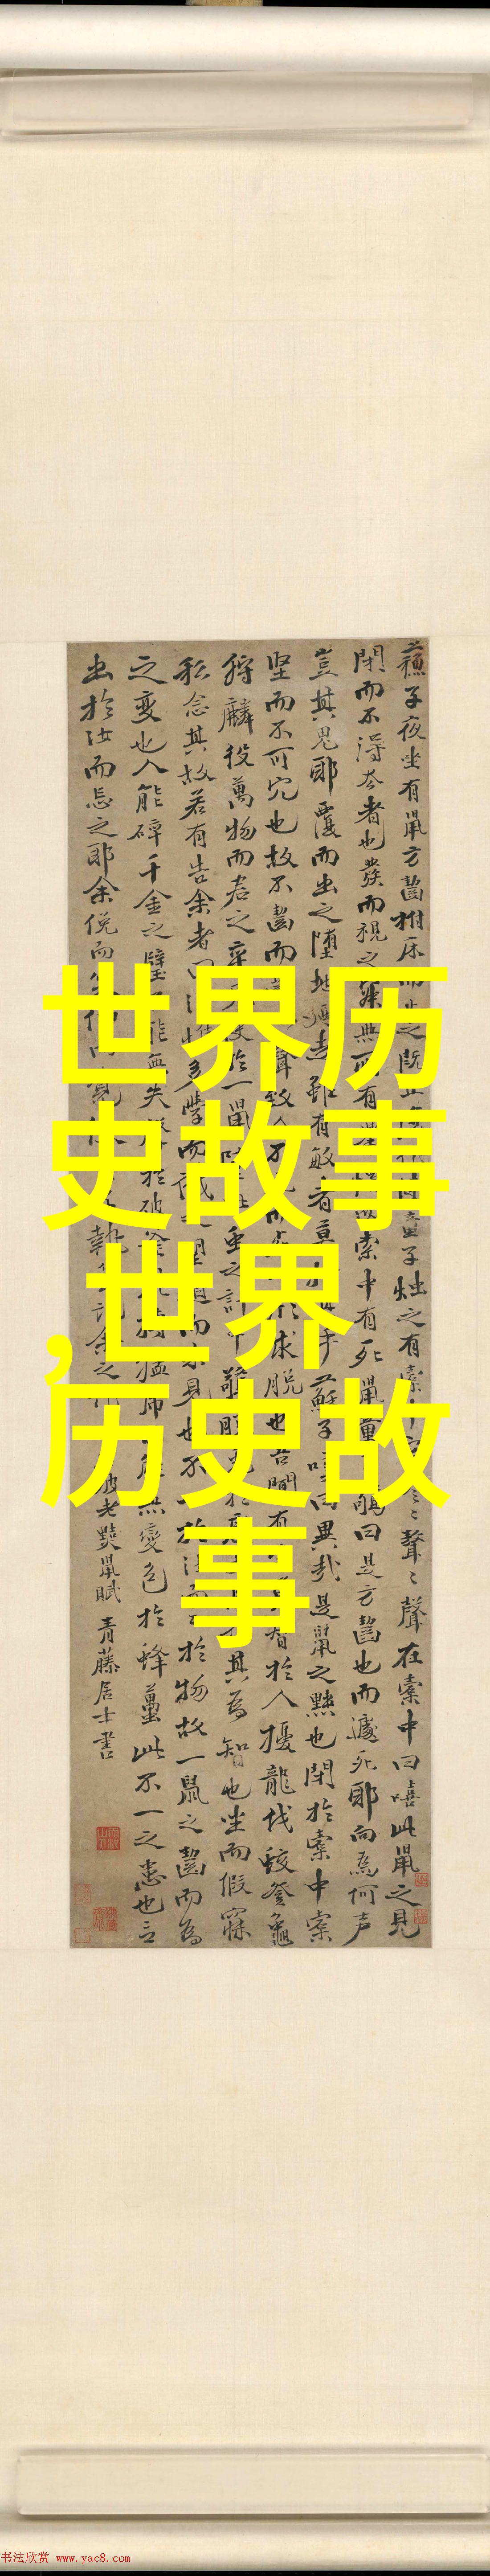 世界历
史故事
,世界
历史故
事
蘇子夜坐有鼠方齧拊床而止之既止童子燭之有橐聲聲在橐中曰嘻此鼠之見
閉而不得去者也發而視之無所有索中有死鼠曰是方齧也而遽死耶向為何声
豈其鬼耶覆而出之墮地走雖有敏者莫手蘇子曰異哉是鼠之黠也閉於橐中橐
堅而不可穴也故不齧而聲致人不求脫也吾聞有智於人擾龍伐蛟登龜
狩麟役萬物而君之卒於一鼠蟲之計中驚脫其為知也坐而假寐
私念其故若有告余者曰多學而識望道而未見也不於汝而於物故一鼠之齧而為
之變也人能碎千金之璧能無失於破猛無變色於蜂蠆此不一之患也言
出於汝而忘之耶余俛而仰而覺執筆記余之作
坡老黠鼠賦 青藤居士書
书法欣赏 www.yac8.com